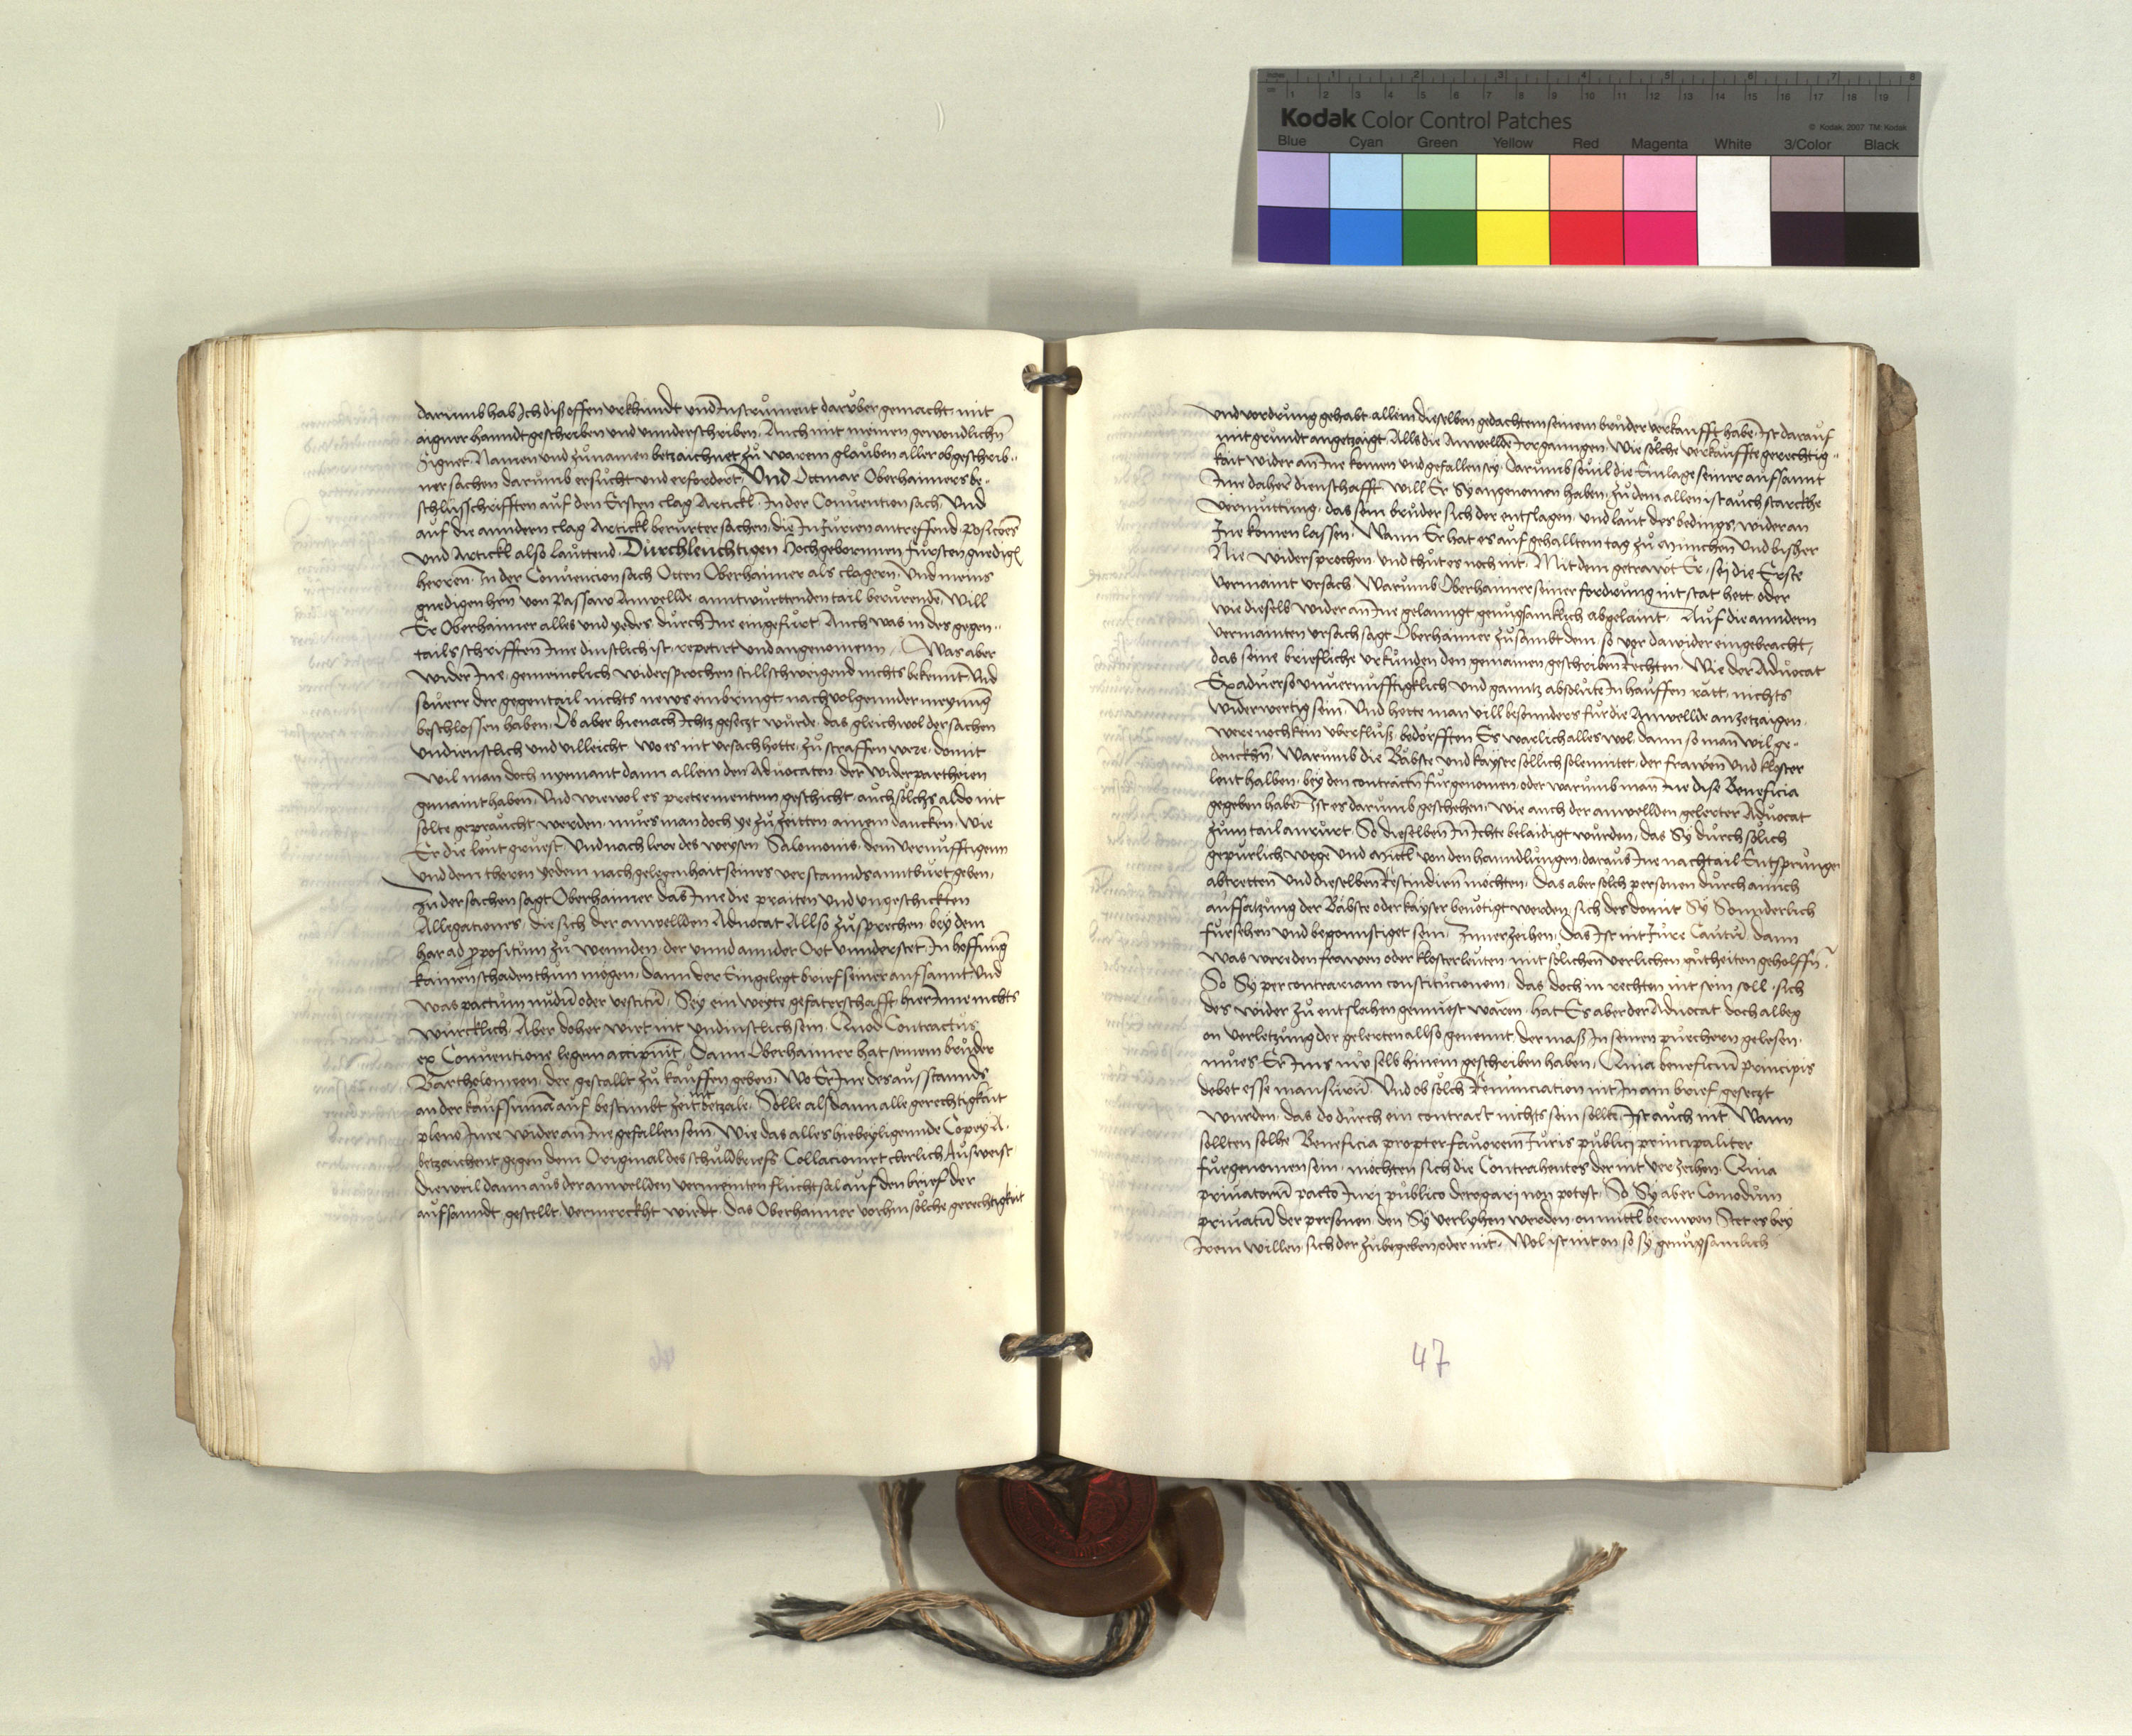 darumb hab Ich diß offen urkhundt und Instrument darüber gemacht mit
aigner hanndt geschriben und unnderschriben. Auch mit meinen gewondlichn̄
Signet. Namen und zunamen betzaichnet zu warem glauben aller obgeschrib-
ner sachen darumb ersucht und erfordert. Und Ottmar Oberhaimers be-
schlusschrifften auf den Ersten clag Artickl. In der Convention sach. Und
auf die anndern clag Artickl berürter sachen. die Injurien antreffend
und Artickl also lauttend. Durchleuchtigen Hochgebornnen fursten gnedig
herren. In der Convencion sach Otten Oberhaimer als clagern. und meins
gnedigen hern̄ von Passaw Anwellde. anntwurttenden tail berurende. Will
Er Oberhaimer alles und yedes durch Ine eingefurt. Auch was in des gegen-
tails schrifften Ime dinstlich ist. repetirt und angenomenn. Was aber
wider Ine. gemeinclich widersprochen stillschweigend nichts bekennt. Und
souerr der gegentail nichts news einbringt. nachvolgennder meynung
beschlossen haben. Ob aber hienach Ichtz gesetzt wurde. das gleichwol der sachen
undienstlich und villeicht wo es nit ursach hette. zu straffen were. domit
wil man doch nyemant dann allein den Advocaten der widerpartheien
gemaint haben. Und wiewol es preter mentem geschicht. auch solchs aldo nit
solte gepraucht werden. mues man doch ye zu zeitten ainem dancken. wie
Er die leut gruest. Und nach lere des weysen Salomonis. dem vernufftigenn
und dem thoren yedem nach gelegenhait seines verstannds anntburt geben.
Zu der sachen sagt Oberhaimer das Ime die praiten und ungeschickten
Allegationes. die sich der anwellden Advocat Allso zusprechen bey dem
har ad propositum zu wennden. der unnd annder Ort unnderstet. In hoffnung
kainen schaden thun mogen. dann der Eingelegt brief seiner aufsannt. Und
was pactum nudū oder vestitū. Sey ein weyte gefaterschafft. hier Inne nichts
würcklich. Aber doher wirt nit undinstlich sein. Quod Contractus
ex Conventione legem accipiunt. Dann Oberhaimer hat seinem bruder
Bartholomeen. der gestallt zu kauffen geben. Wo Er Ine des ausstannds
an der kaufsumā auf bestimbt zeit nit betzale. Solle alsdann alle gerechtigkait
pleno Iure wider an Ine gefallen sein. Wie das alles hiebeyligennde Copey A.
betzaichent gegen dem Original des schuldbriefs Collacionirt clerlich Ausweist
dieweil dann aus der anwellden vermeinten fluchtsal auf den brief der
aufsanndt gestellt vermerckht wirdt. Das Oberhaimer vorhin solche gerechtigkait
46
und vordrung gehabt. allein dieselben gedachtem seinem bruder verkaufft habe. Ist darauf
mit grundt angetzaigt. Alls die Anwellde Irganngen. Wie solche verkauffte gerechtig-
kait wider an Ine komen und gefallen sey. Darumb sovil die Einlage seiner aufsannt
Ime daher dienschafft. will Er Sy angenomen haben. Zu dem allen ist auch starckhe
Vermuttung. das sein bruder sich der entslagen. und laut des bedings. wider an
Ine komen lassen. Wann Er hat es auf gehalltem tag zu munchen und bisher
Nie widersprochen. und thut es noch nit. Mit dem getrawt Er. sei die Erste
vermaint ursach. Warumb Oberhaimer seiner fordrung nit stat hett oder
wie dieselb wider an Ine gelanngt genugsamklich abgelaint. Auf die anndern
vermainten ursach sagt Oberhaimer zusambt dem. so vor dawider eingebracht.
das seine briefliche urkunden den gemainen geschriben Rechten. Wie der Advocat
Ex adverso unvernufftigklich und ganntz absolute In hauffen ratt. nichts
widerwertig sein. Und hette man vill besonnders fur die Anwellde anzetzaigen.
were noch kein uberfluß. bedorfften Es warlich alles wol. dann so man wil ge-
denckhn̄. Warumb die Bäbste und kayser sollich solemnitet. der frawen und kloster
leut halben. bey den contractn̄ furgenomen. oder warumb man Ine dise Beneficia
gegeben habe. Ist es darumb geschehen. Wie auch der anwellden gelerter Advocat
zum tail anrurt. So dieselben In Ichte belaidigt wurden. das Sy durch solich
gepurlich wege und mittl von den hanndlungen. daraus Ine nachtail Entsprunge
abtretten und dieselben Rescindirn mochten. Das aber solch personen durch ainich
auffatzung der Bäbste oder kayser benotigt werden. sich des domit Sy Sonnderlich
fursehen und begonnstiget sein. Zuverzeihen. Das Ist nit Jure Cautū. dann
was were den frawen oder klosterleuten. mit solichen verlichen gutheiten geholffn̄.
So Sy per contrariam constitucionem. das doch in rechten nit sein soll. sich
des wider zu entslahen gemuest waren. hat Es aber der Advocat doch albeg
on verletzung der gelerten allso genennt. dermaß In seinen puechern gelesen.
mues Er Ims nur selb hinein geschriben haben. Quia beneficiū principis
debet esse mansurū. Und ob solch Renunciation nit In ain brief gesetzt
wurden. das dodurch ein contract nichts sein sollt. Ist auch nit. Wann
sollten solhe Beneficia propter favorem Juris publici principaliter
furgenomen sein. mochten sich die Contrahentes der nit verzeihen. Quia
privatorū pacto Juri publico derogari non potest. So Sy aber Comodum
privatū der personen. den Sy verlyhen werden. on mittl berurn. Stet es bey
Irem willen. sich der zubegeben. oder nit. Wol ist nit on so sy genugsamlich
47
Kodak Color Control Patches
© Kodak, 2007 TM: Kodak
Blue Cyan Green Yellow Red Magenta White 3/Color Black